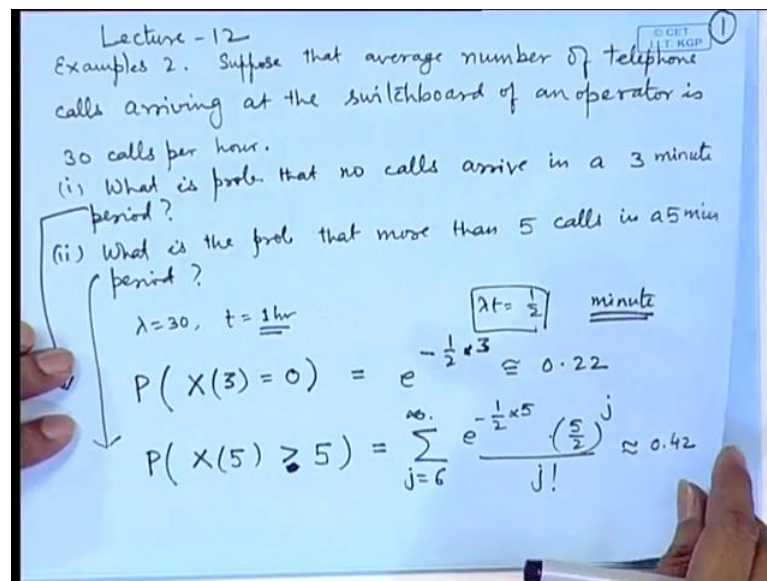 Lecture - 12
© CET
I.I.T. KGP
1
Examples 2. Suppose that average number of telephone
calls arriving at the switchboard of an operator is
30 calls per hour.
(i) What is prob. that no calls arrive in a 3 minute
period?
(ii) What is the prob that more than 5 calls in a 5 min
period?
λ=30, t = 1 hr
λt = 1/2 minute
P( X(3) = 0 ) = e^{-1/2 × 3} ≅ 0.22
P( X(5) ≥ 5 ) = ∑_{j=6}^{∞} e^{-1/2 × 5} · (5/2)^j / j! ≈ 0.42